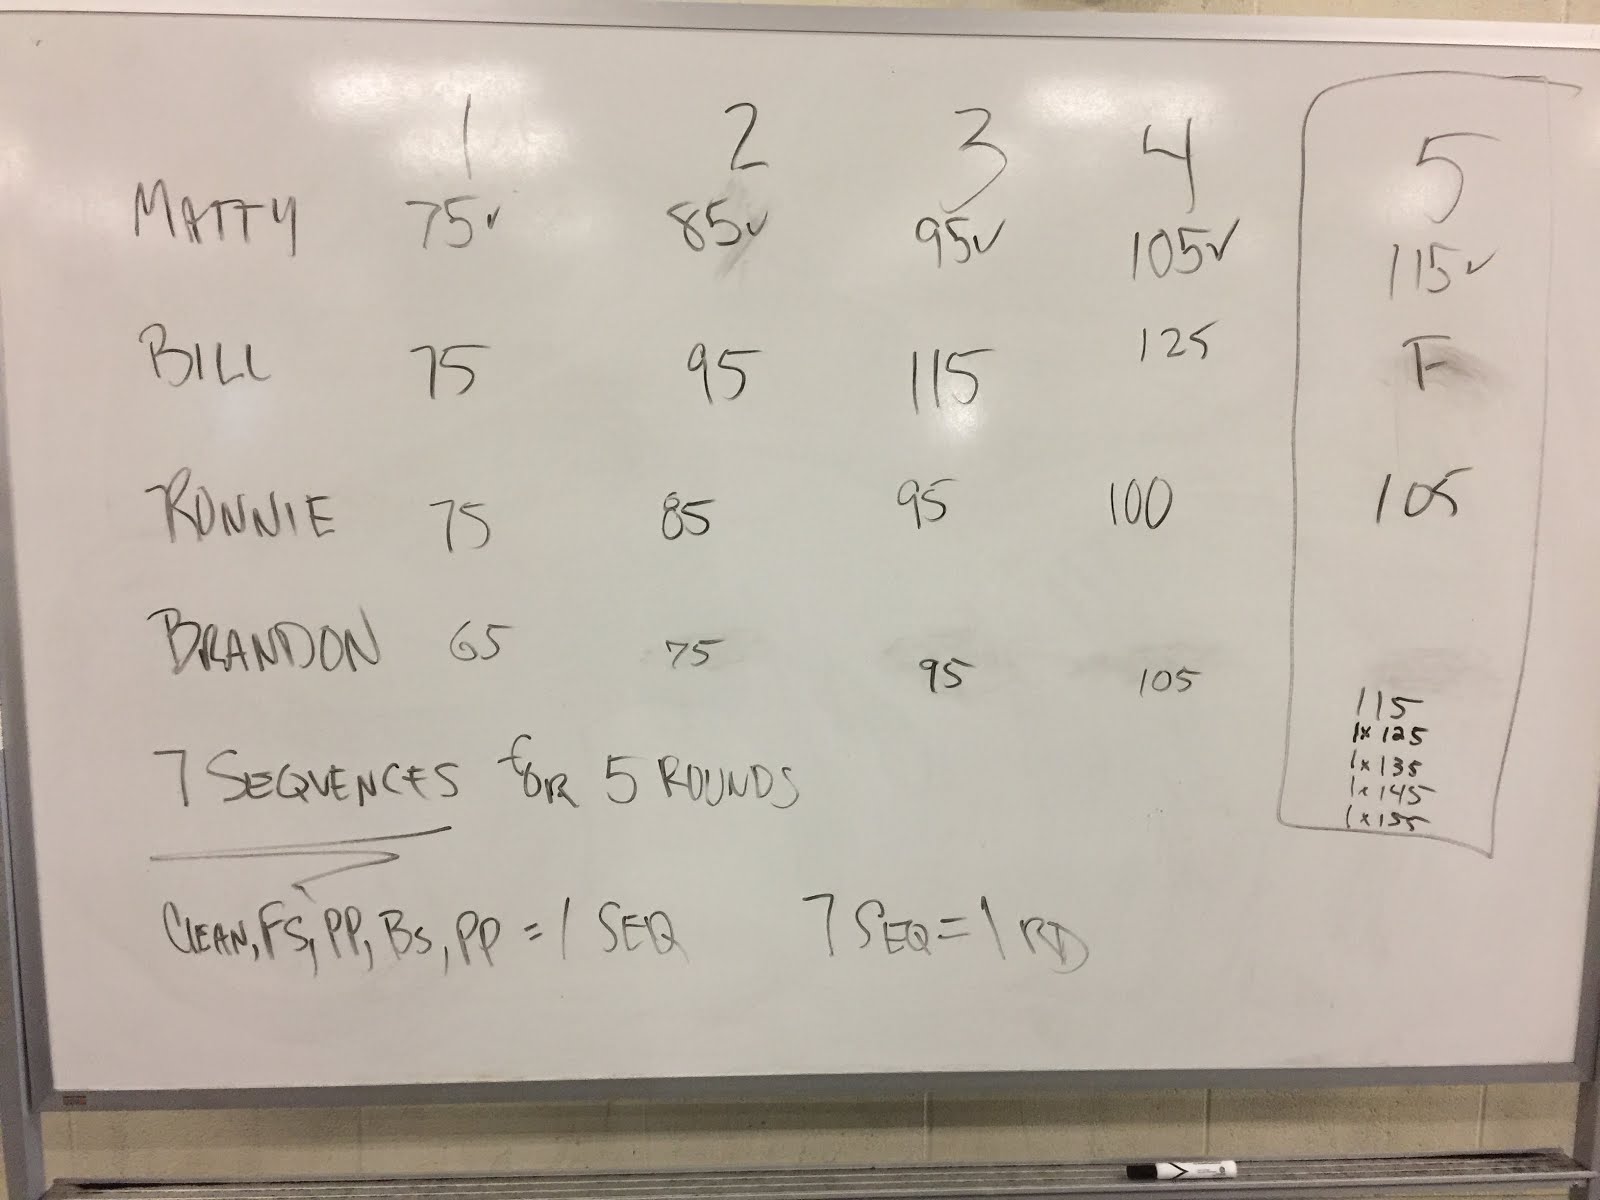 1 2 3 4 5
MATTY 75✓ 85✓ 95✓ 105✓ 115✓
BILL 75 95 115 125 F
RONNIE 75 85 95 100 105
BRANDON 65 75 95 105 115
1x 125
1x 135
1x 145
1x 155
7 SEQUENCES for 5 ROUNDS
CLEAN, FS, PP, BS, PP = 1 SEQ 7 SEQ = 1 RD